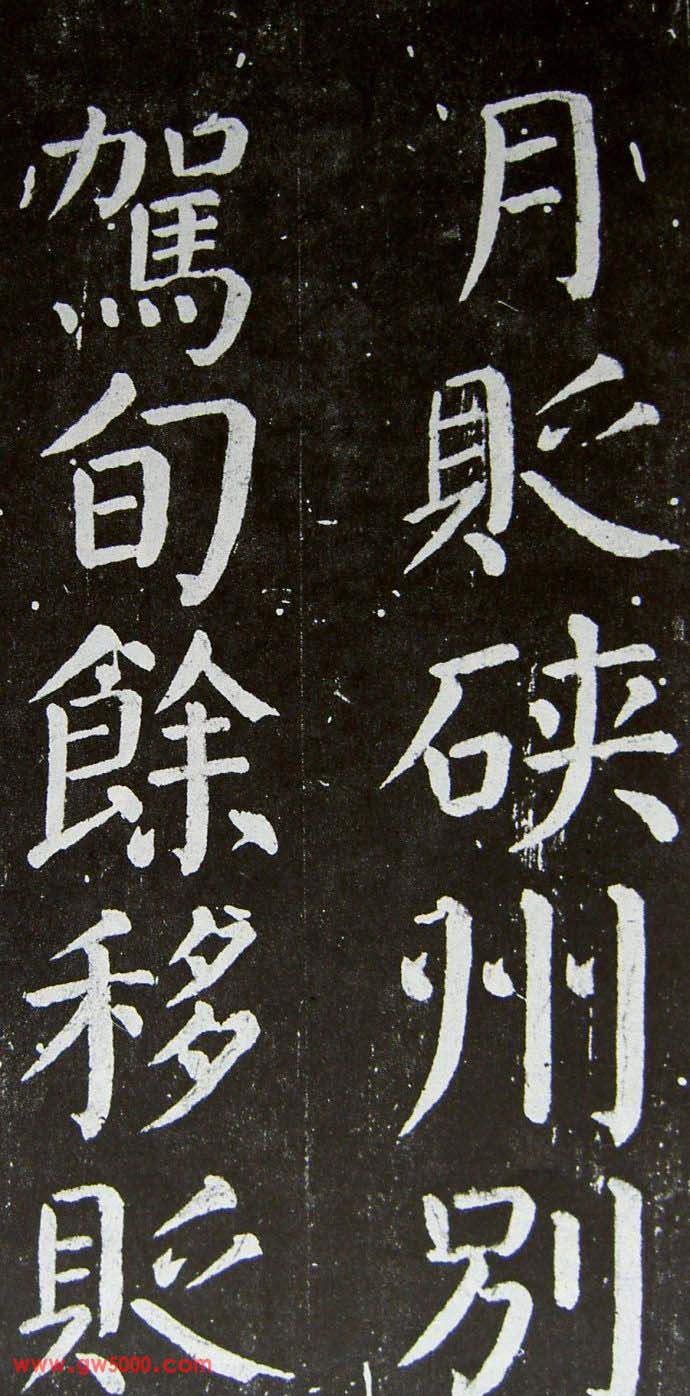 月貶硤州別
駕旬餘移貶
www.gw5000.com